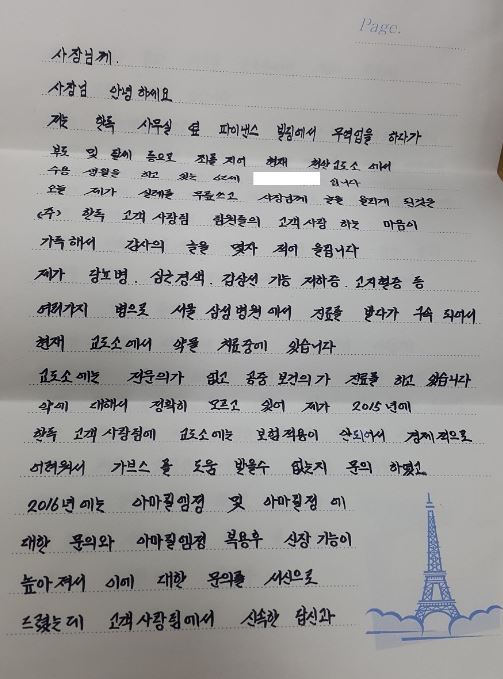 Page.
사장님께.
사장님 안녕하세요
저는 한독 사무실 옆 파이낸스 빌딩에서 무역업을 하다가
부도 및 등으로 죄를 지어 현재 교도소에서
수용 생활을 하고 있는 입니다
오늘 제가 실례를 무릅쓰고 사장님께 글을 올리게 된것은
(주) 한독 고객사랑팀 팀원들의 고객사랑 하는 마음이
가득해서 감사의 글을 몇자 적어 올립니다
제가 당뇨병. 심근경색. 갑상선 기능 저하증. 고지혈증 등
여러가지 병으로 서울 삼성병원에서 진료를 받다가 구속 되어서
현재 교도소에서 약물 치료중에 있습니다
교도소에는 전문의가 없고 공중 보건의가 진료를 하고 있습니다
약에 대해서 정확히 모르고 있어 제가 2015년에
한독 고객사랑팀에 교도소에는 보험적용이 안되어서 경제적으로
어려워서 가브스를 도움 받을수 없는지 문의 하였고
2016년에는 아마릴엠정 및 아마릴정에
대한 문의와 아마릴엠정 복용후 신장기능이
높아져서 이에 대한 문의를 서신으로
드렸는데 고객사랑팀에서 신속한 답신과